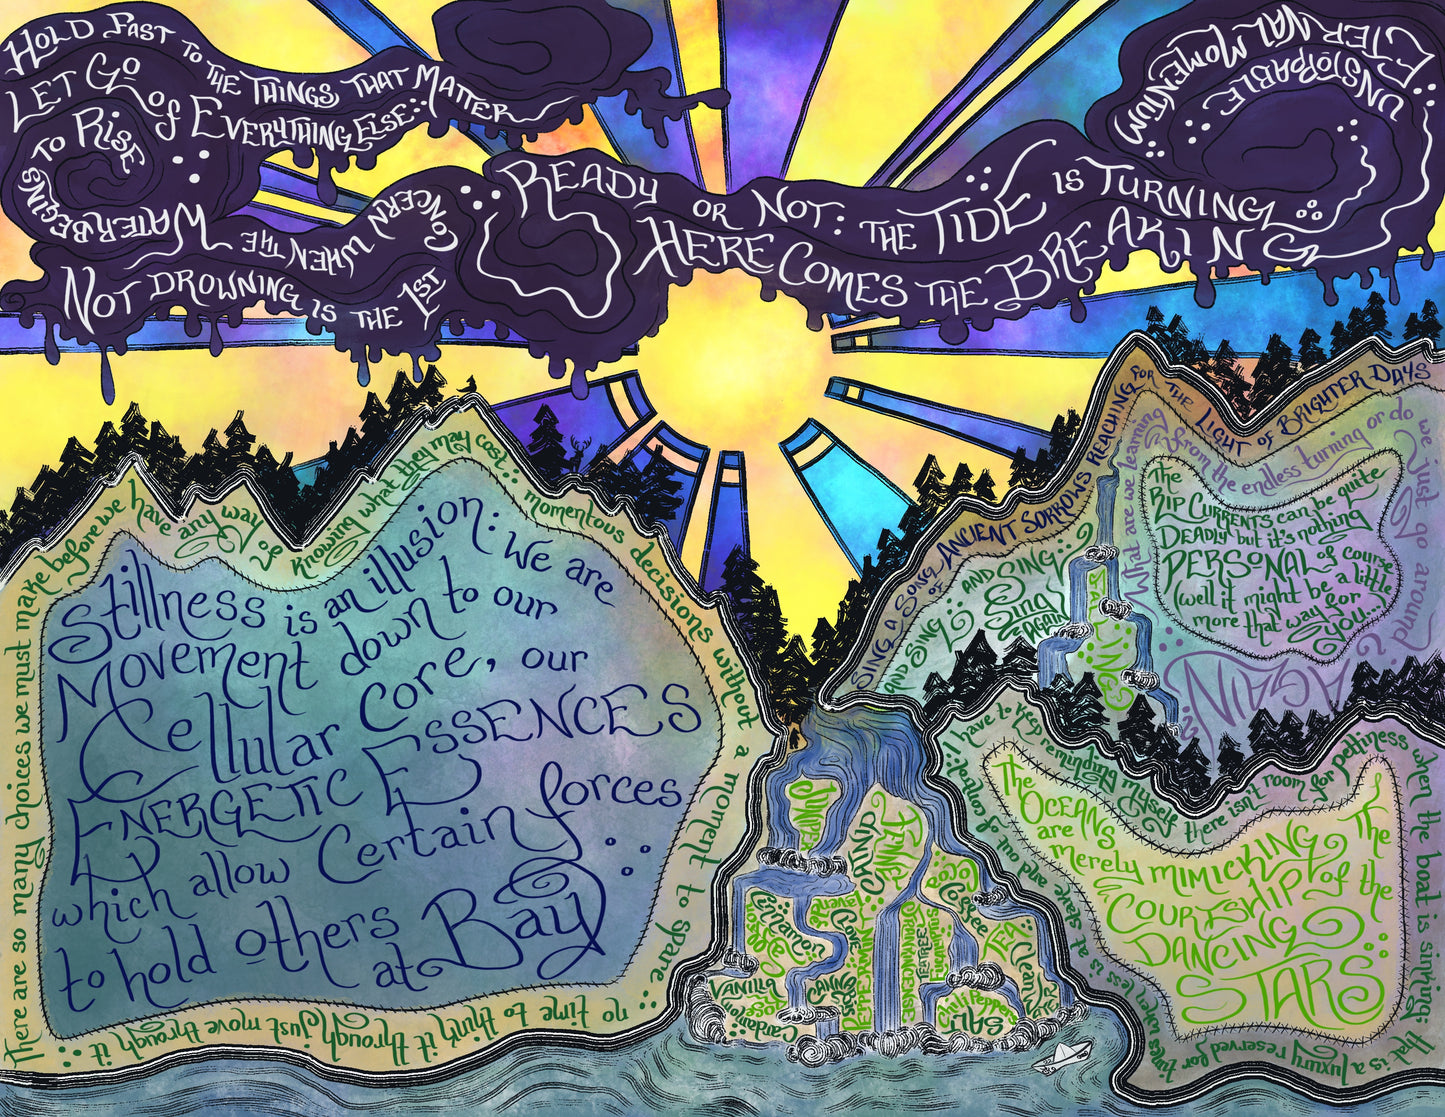 HOLD FAST TO THE THINGS THAT MATTER
LET GO of EVERYTHING ELSE:
NOT DROWNING IS THE 1ST
CONCERN WHEN THE
WATER BEGINS
TO RISE
READY OR NOT: THE TIDE IS TURNING
HERE COMES THE BREAKING
UNSTOPPABLE
ETERNAL MOMENTUM
There are so many choices we must make before we have any way of knowing what they may cost: momentous decisions without a moment to spare
no time to think it through just move through it
Stillness is an illusion: we are
Movement down to our
Cellular Core, our
ENERGETIC ESSENCES
which allow Certain forces
to hold others
at Bay
SING A SONG OF ANCIENT SORROWS REACHING FOR THE LIGHT OF BRIGHTER DAYS
AND SING
AND SING
Sing
AGAIN
What are we learning from the endless turning or do we just go around
AGAIN?
The
RIP CURRENTS can be quite
DEADLY but it's nothing
PERSONAL of course
(well it might be a little
more that way for
you...
SAIL
INGS
I have to keep reminding myself there isn't room for pettiness when the boat is sinking: that is a luxury reserved for times when less is at stake and out of control:
The
OCEANS
are
merely MIMICKING The
COURTSHIP of the
DANCING
STARS
JUNIPER
CATNIP
FENNEL
VANILLA
CLOVE
PEPPERMINT
FRANKINCENSE
TEATREE
COFFEE
TEA
Chili Pepper
SALT
Cardamom